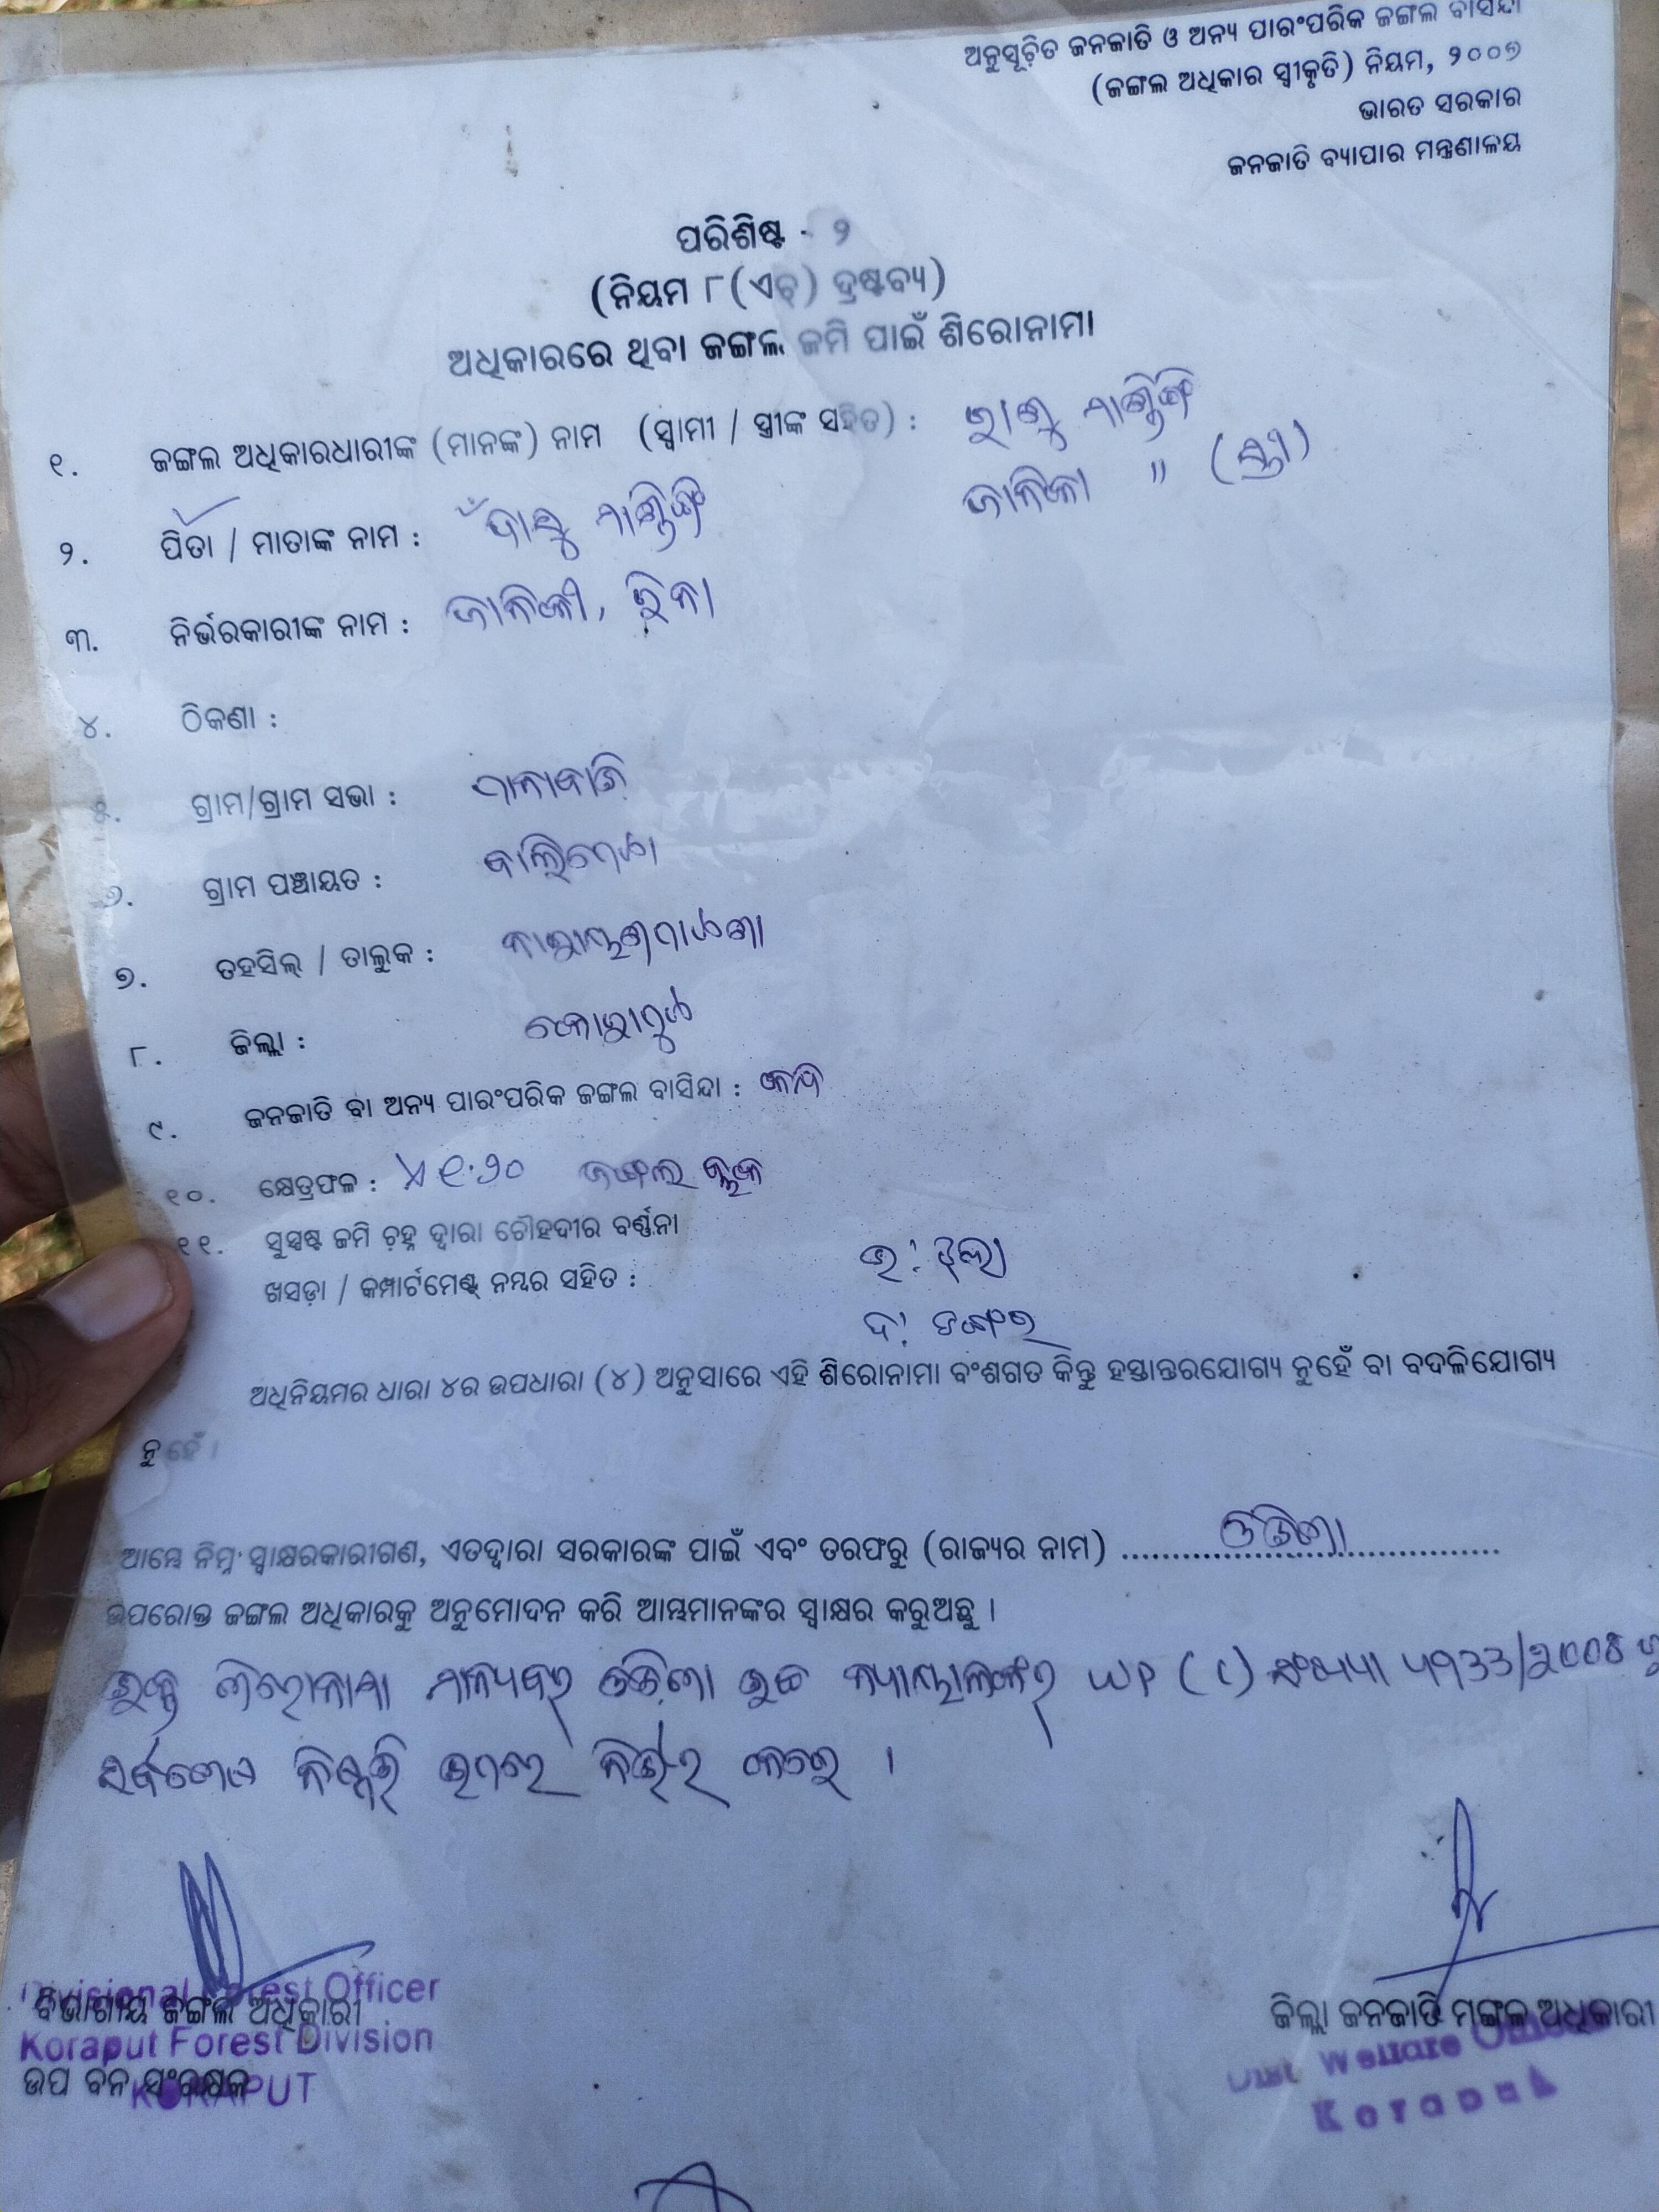 ଅନୁସୂଚିତ ଜନଜାତି ଓ ଅନ୍ୟ ପାରଂପରିକ ଜଙ୍ଗଲ ବାସିନ୍ଦା
(ଜଙ୍ଗଲ ଅଧିକାର ସ୍ୱୀକୃତି) ନିୟମ, ୨୦୦୭
ଭାରତ ସରକାର
ଜନଜାତି ବ୍ୟାପାର ମନ୍ତ୍ରଣାଳୟ
ପରିଶିଷ୍ଟ - ୨
(ନିୟମ ୮(ଏଚ୍) ଦ୍ରଷ୍ଟବ୍ୟ)
ଅଧିକାରରେ ଥିବା ଜଙ୍ଗଲ ଜମି ପାଇଁ ଶିରୋନାମା
୧. ଜଙ୍ଗଲ ଅଧିକାରଧାରୀଙ୍କ (ମାନଙ୍କ) ନାମ (ସ୍ୱାମୀ / ସ୍ତ୍ରୀଙ୍କ ସହିତ) :
" (ସ୍ତ୍ରୀ)
୨. ପିତା / ମାତାଙ୍କ ନାମ :
୩. ନିର୍ଭରକାରୀଙ୍କ ନାମ :
୪. ଠିକଣା :
୫. ଗ୍ରାମ/ଗ୍ରାମ ସଭା :
୬. ଗ୍ରାମ ପଞ୍ଚାୟତ : ବାଲିପେଟା
୭. ତହସିଲ୍ / ତାଲୁକ : ନାରାୟଣପାଟଣା
୮. ଜିଲ୍ଲା : କୋରାପୁଟ
୯. ଜନଜାତି ବା ଅନ୍ୟ ପାରଂପରିକ ଜଙ୍ଗଲ ବାସିନ୍ଦା :
୧୦. କ୍ଷେତ୍ରଫଳ : ୧.୨୦ ଜଙ୍ଗଲ ବ୍ଲକ
୧୧. ସୁସ୍ପଷ୍ଟ ଜମି ଚିହ୍ନ ଦ୍ୱାରା ଚୌହଦୀର ବର୍ଣ୍ଣନା
ଖସଡ଼ା / କମ୍ପାର୍ଟମେଣ୍ଟ୍ ନମ୍ବର ସହିତ : ଉ:
ଦ: ଡଙ୍ଗର
ଅଧିନିୟମର ଧାରା ୪ର ଉପଧାରା (୪) ଅନୁସାରେ ଏହି ଶିରୋନାମା ବଂଶଗତ କିନ୍ତୁ ହସ୍ତାନ୍ତରଯୋଗ୍ୟ ନୁହେଁ ବା ବଦଳିଯୋଗ୍ୟ
ନୁହେଁ ।
ଆମ୍ଭେ ନିମ୍ନ ସ୍ୱାକ୍ଷରକାରୀଗଣ, ଏତଦ୍ୱାରା ସରକାରଙ୍କ ପାଇଁ ଏବଂ ତରଫରୁ (ରାଜ୍ୟର ନାମ) ଓଡିଶା
ଉପରୋକ୍ତ ଜଙ୍ଗଲ ଅଧିକାରକୁ ଅନୁମୋଦନ କରି ଆମ୍ଭମାନଙ୍କର ସ୍ୱାକ୍ଷର କରୁଅଛୁ ।
ଉକ୍ତ ଶିରୋନାମା ମାନ୍ୟବର ଓଡ଼ିଶା ଉଚ୍ଚ ନ୍ୟାୟାଳୟଙ୍କର WP (C) ସଂଖ୍ୟା 4933/2008
ସର୍ବଶେଷ ନିଷ୍ପତ୍ତି ଉପରେ ନିର୍ଭର କରେ ।
Divisional Forest Officer
ବିଭାଗୀୟ ଜଙ୍ଗଲ ଅଧିକାରୀ
Koraput Forest Division
ଉପ ବନ ସଂରକ୍ଷକ
KORAPUT
ଜିଲ୍ଲା ଜନଜାତି ମଙ୍ଗଳ ଅଧିକାରୀ
Dist Welfare Officer
Koraput